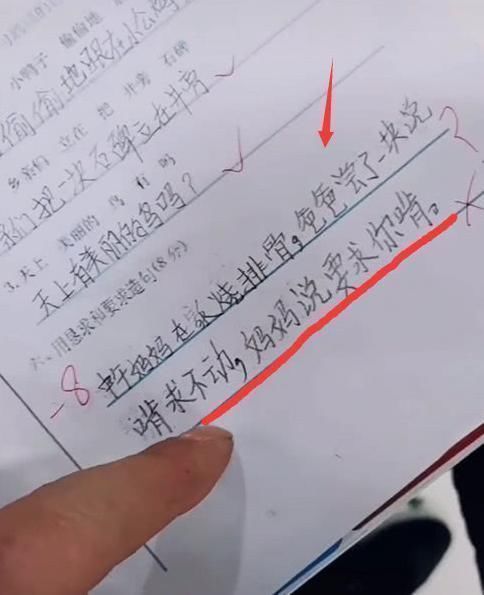 小鸭子 偷偷地
偷偷地跟在小
乡亲们 立在 把 井旁 石碑
们把一块石碑立在井旁
3. 天上 美丽的 鸟 有 吗
天上有美丽的鸟吗?
六、用恳求和要求造句(8分)
-8
中午妈妈在家烧排骨,爸爸尝了一块说 ?
啃求不动,妈妈说要求你啃。